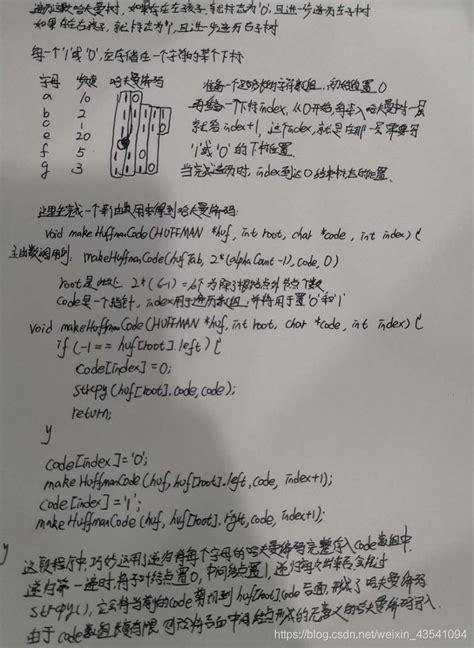 遍历哈夫曼树,如果存在左孩子,就标志为'0',且进一步进为左子树
如果存在右孩子,就标志为'1',且进一步进为右子树
每一个'1'或'0',应存储在一个字符的某个下标
字母 频度 哈夫曼编码
a 10
b 2
c 1
e 20
f 5
g 3
准备一个足够长的字符数组,初始位置0
再给一个下标index,从0开始,每深入哈夫曼树一层
就给index+1,这个index,就是在那一层需要写
'1'或'0'的下标位置.
当完成遍历时,index到达0结束标志的位置.
这里先完成一个新函数用来得到哈夫曼编码:
void makeHuffmanCode(HUFFMAN *huf, int root, char *code, int index){
主函数调用则: makeHuffmanCode(hufTab, 2*(alphaCount-1), code, 0)
root是 2*(6-1)=10
code是一个指针,index用于遍历数组,并将用于置'0'和'1'
void makeHuffmanCode(HUFFMAN *huf, int root, char *code, int index){
if(-1== huf[root].left){
code[index]=0;
strcpy(huf[root].code, code);
return;
}
code[index]='0';
makeHuffmanCode(huf, huf[root].left, code, index+1);
code[index]='1';
makeHuffmanCode(huf, huf[root].right, code, index+1);
}
这段程序中,巧妙运用了递归将每个字母的哈夫曼编码完整存入code数组中.
strcpy(),它会将当前的code剪切到huf[root].code
由于code数组
https://blog.csdn.net/weixin_43541094